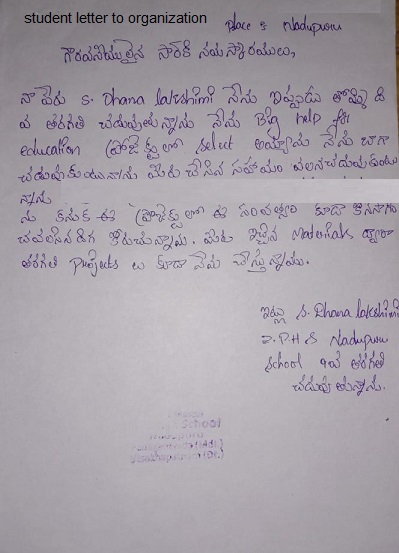 student letter to organization
place : Nadupuru
గౌరవనీయులైన సార్‌కి నమస్కారములు,
నా పేరు S. Dhana lakshimi నేను ఇప్పుడు తొమ్మిది
వ తరగతి చదువుతున్నాను నేను Big help for
education ప్రోజెక్ట్‌లో select అయ్యాను నేను బాగా
చదువుకుంటున్నాను మీరు చేసిన సహాయం వలన చదువుకుంటు
న్నాను
ను కనుక ఈ ప్రోజెక్ట్‌లో ఈ సంవత్సరం కూడా కొనసాగిం
చవలసినదిగా కోరుచున్నాను. మీరు ఇచ్చిన Materials ద్వారా
తరగతి Projects లు కూడా నేను చేస్తున్నాను.
ఇట్లు S. Dhana lakshimi
Z.P.H.S Nadupuru
School 9వ తరగతి
చదువుతున్నాను.
School